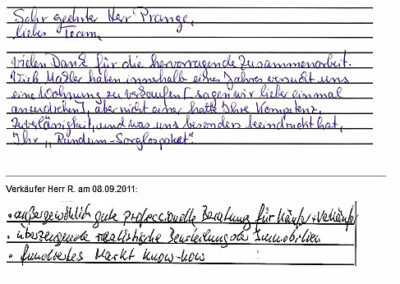 Sehr geehrter Herr Prange,
liebes Team,
vielen Dank für die hervorragende Zusammenarbeit.
Makler haben innerhalb eines Jahres versucht uns
eine Wohnung zu verkaufen (sagen wir lieber einmal
anzudrehen), aber nicht einer hatte Ihre Kompetenz,
Zuverlässigkeit, und was uns besonders beeindruckt hat,
Ihr „Rundum-Sorglospaket".
Verkäufer Herr R. am 08.09.2011:
• außergewöhnlich gute professionelle Beratung für Käufer + Verkäufer
• überzeugende realistische Beurteilung der Immobilien
• fundiertes Markt Know-how